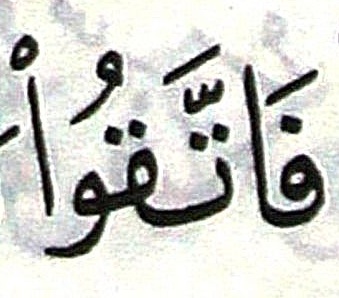 فَاتَّقُواْ